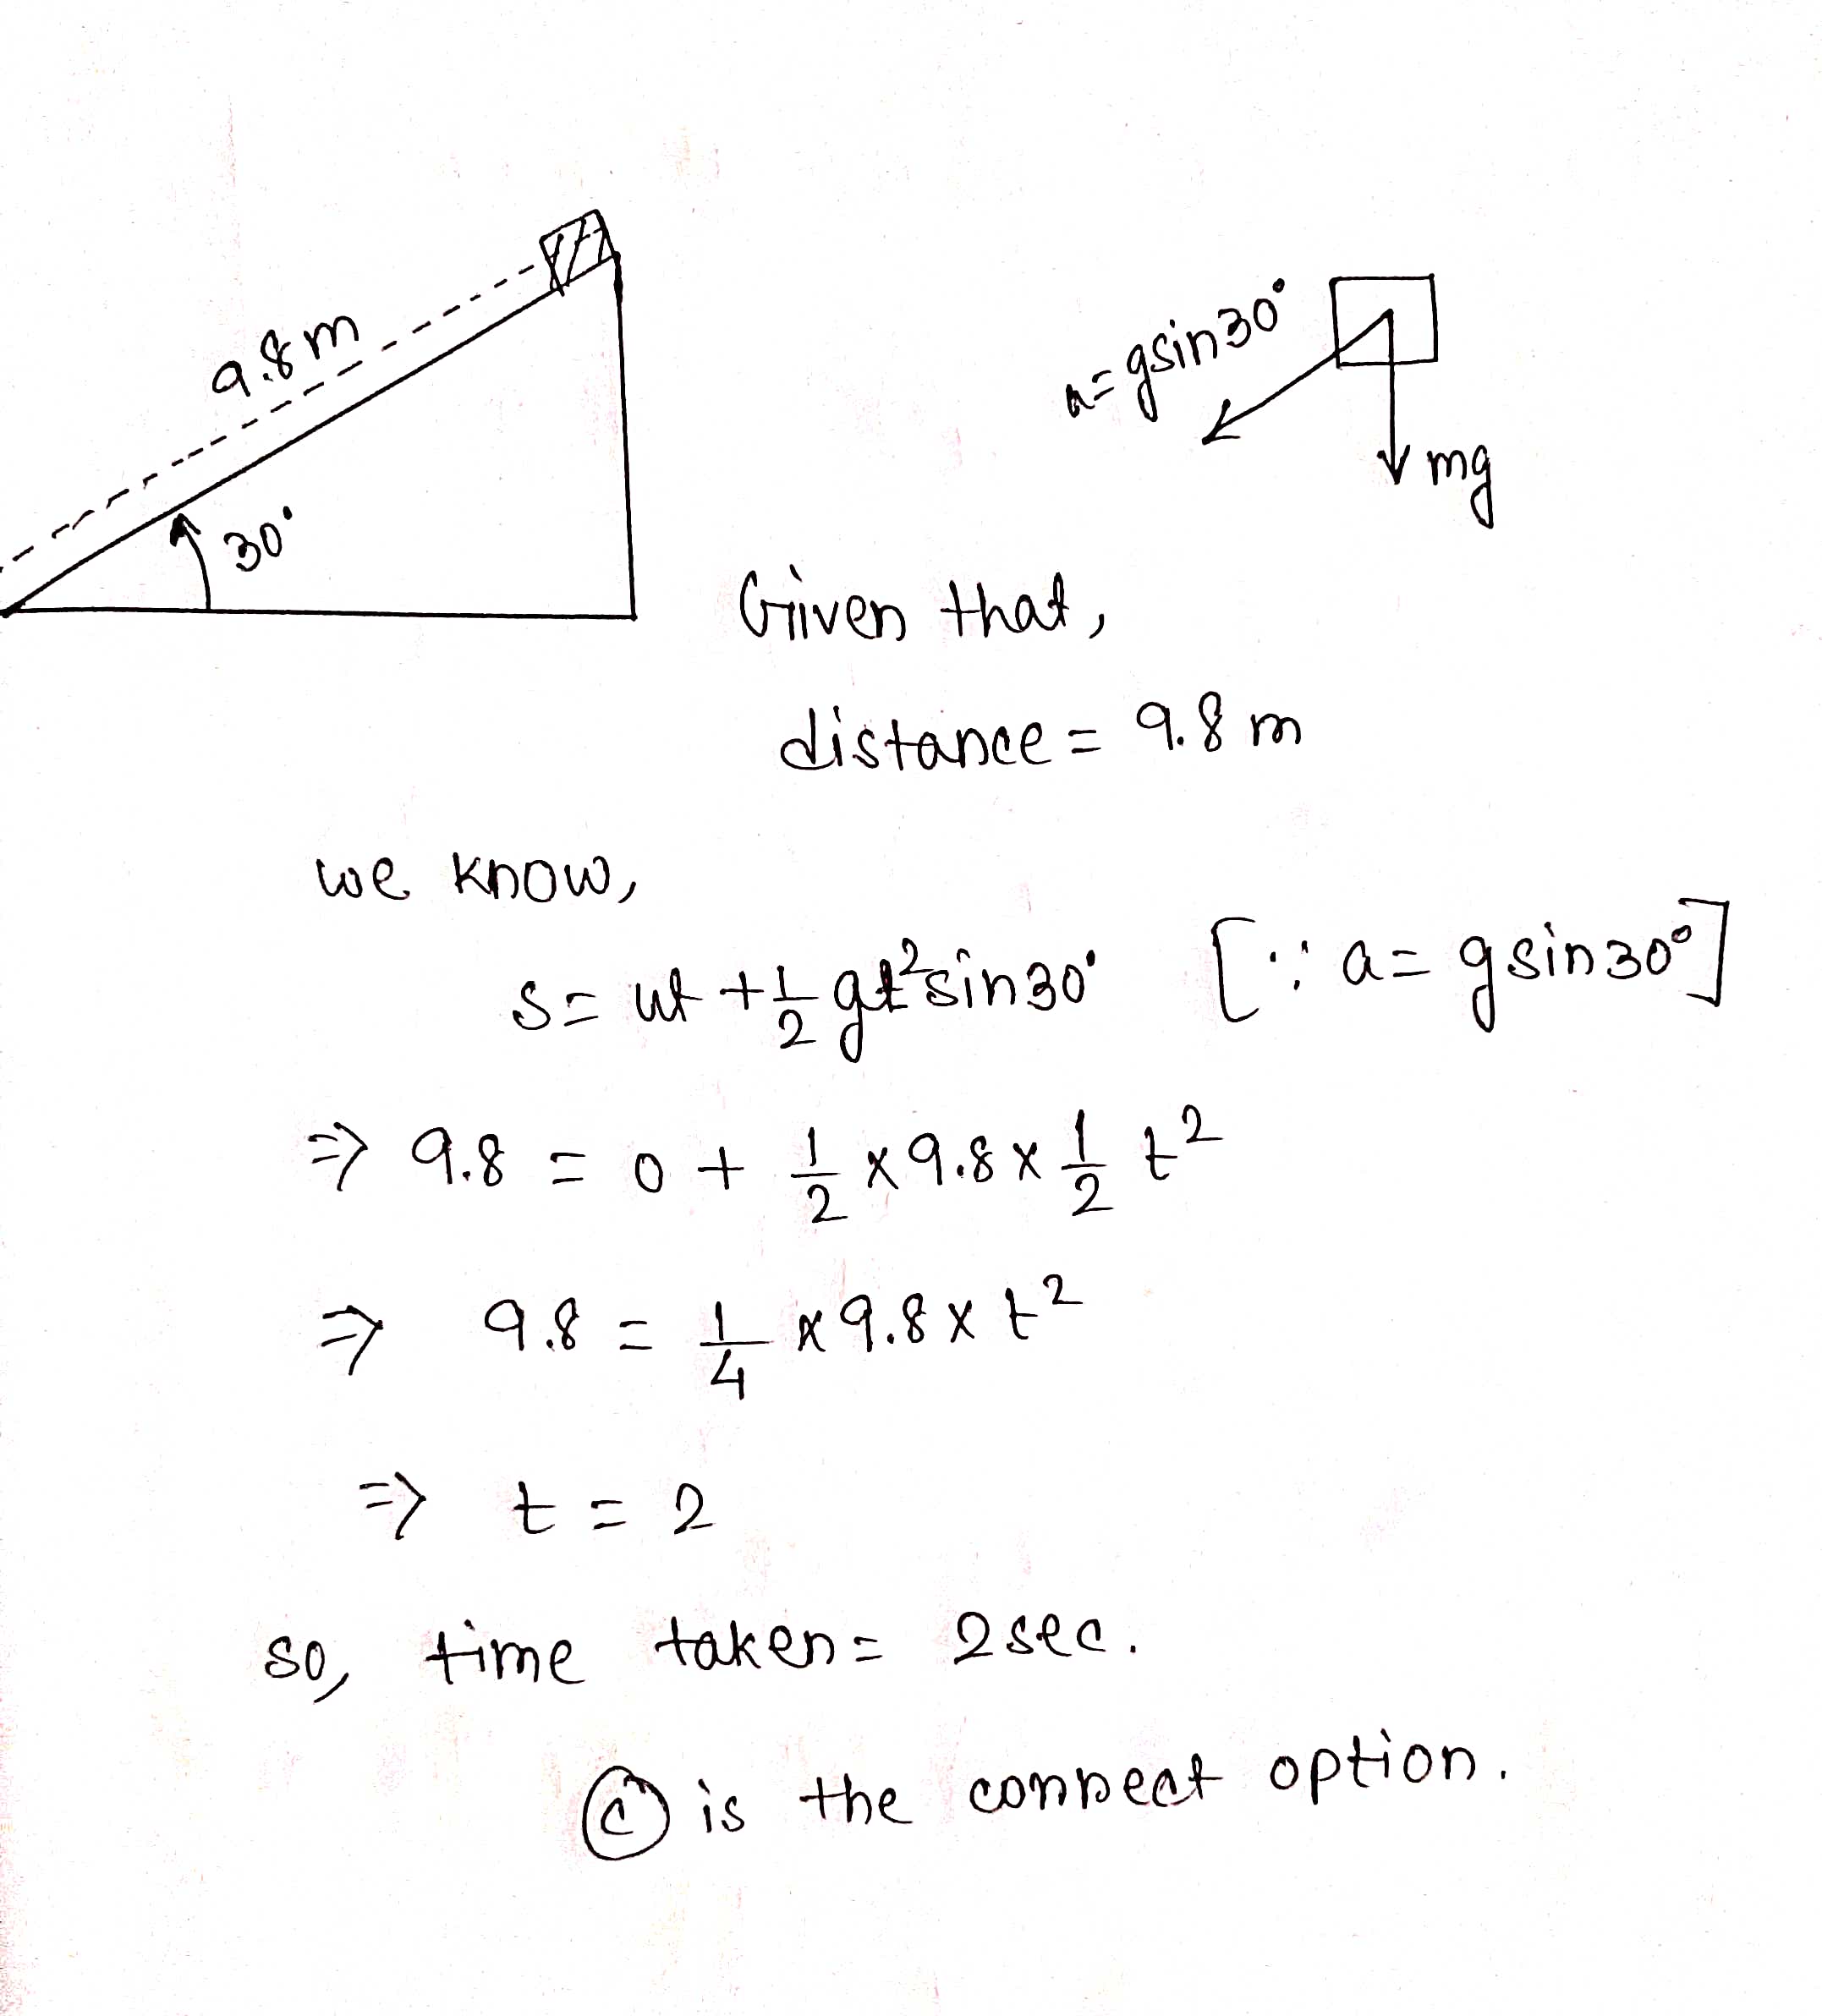 9.8m
30°
a=gsin30°
mg
Given that,
distance = 9.8 m
we know,
s= ut + 1/2 gt²sin30° [∵ a= gsin30°]
⇒ 9.8 = 0 + 1/2 x 9.8 x 1/2 t²
⇒ 9.8 = 1/4 x 9.8 x t²
⇒ t = 2
so, time taken= 2sec.
(c) is the correct option.